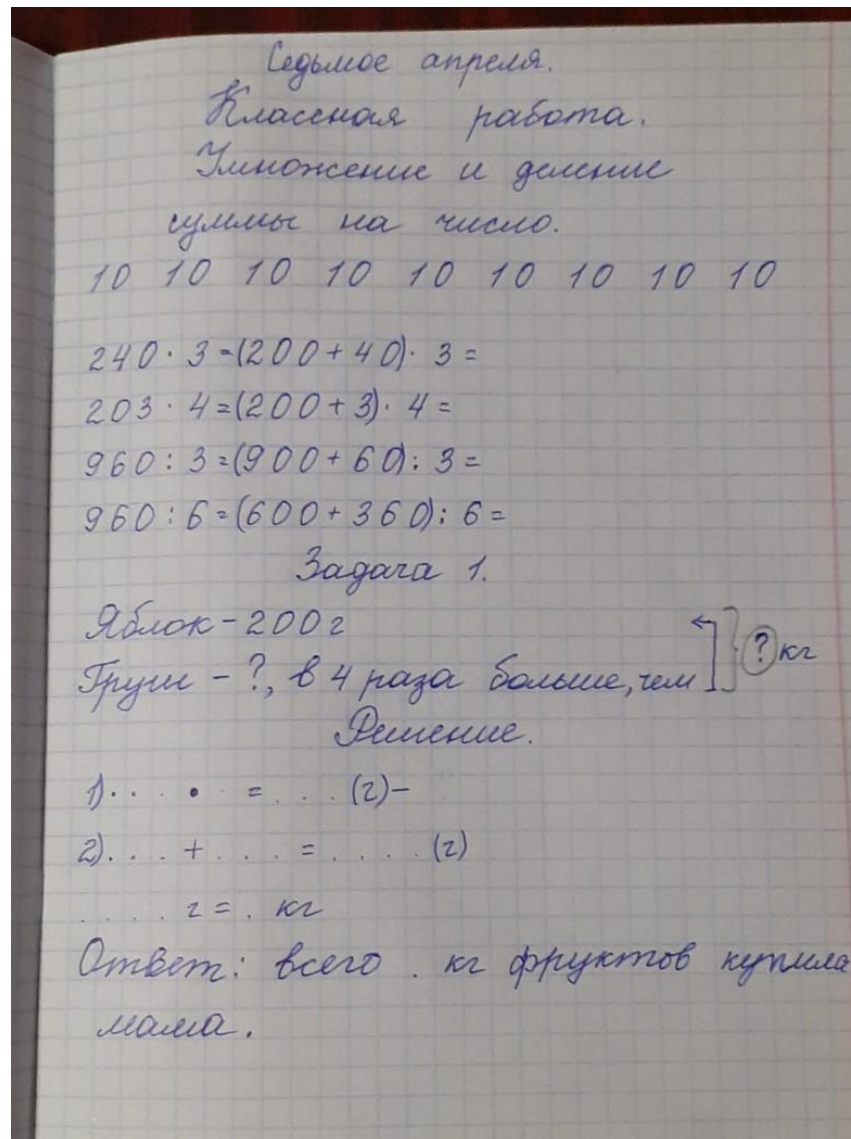 Седьмое апреля.
Классная работа.
Умножение и деление
суммы на число.
10 10 10 10 10 10 10 10 10
240 · 3 = (200 + 40) · 3 =
203 · 4 = (200 + 3) · 4 =
960 : 3 = (900 + 60) : 3 =
960 : 6 = (600 + 360) : 6 =
Задача 1.
Яблок - 200 г
Груш - ?, в 4 раза больше, чем ? кг
Решение.
1) . . . · . = . . . (г) -
2) . . . + . . . = . . . . (г)
. . . . г = . кг
Ответ: всего . кг фруктов купила
мама.